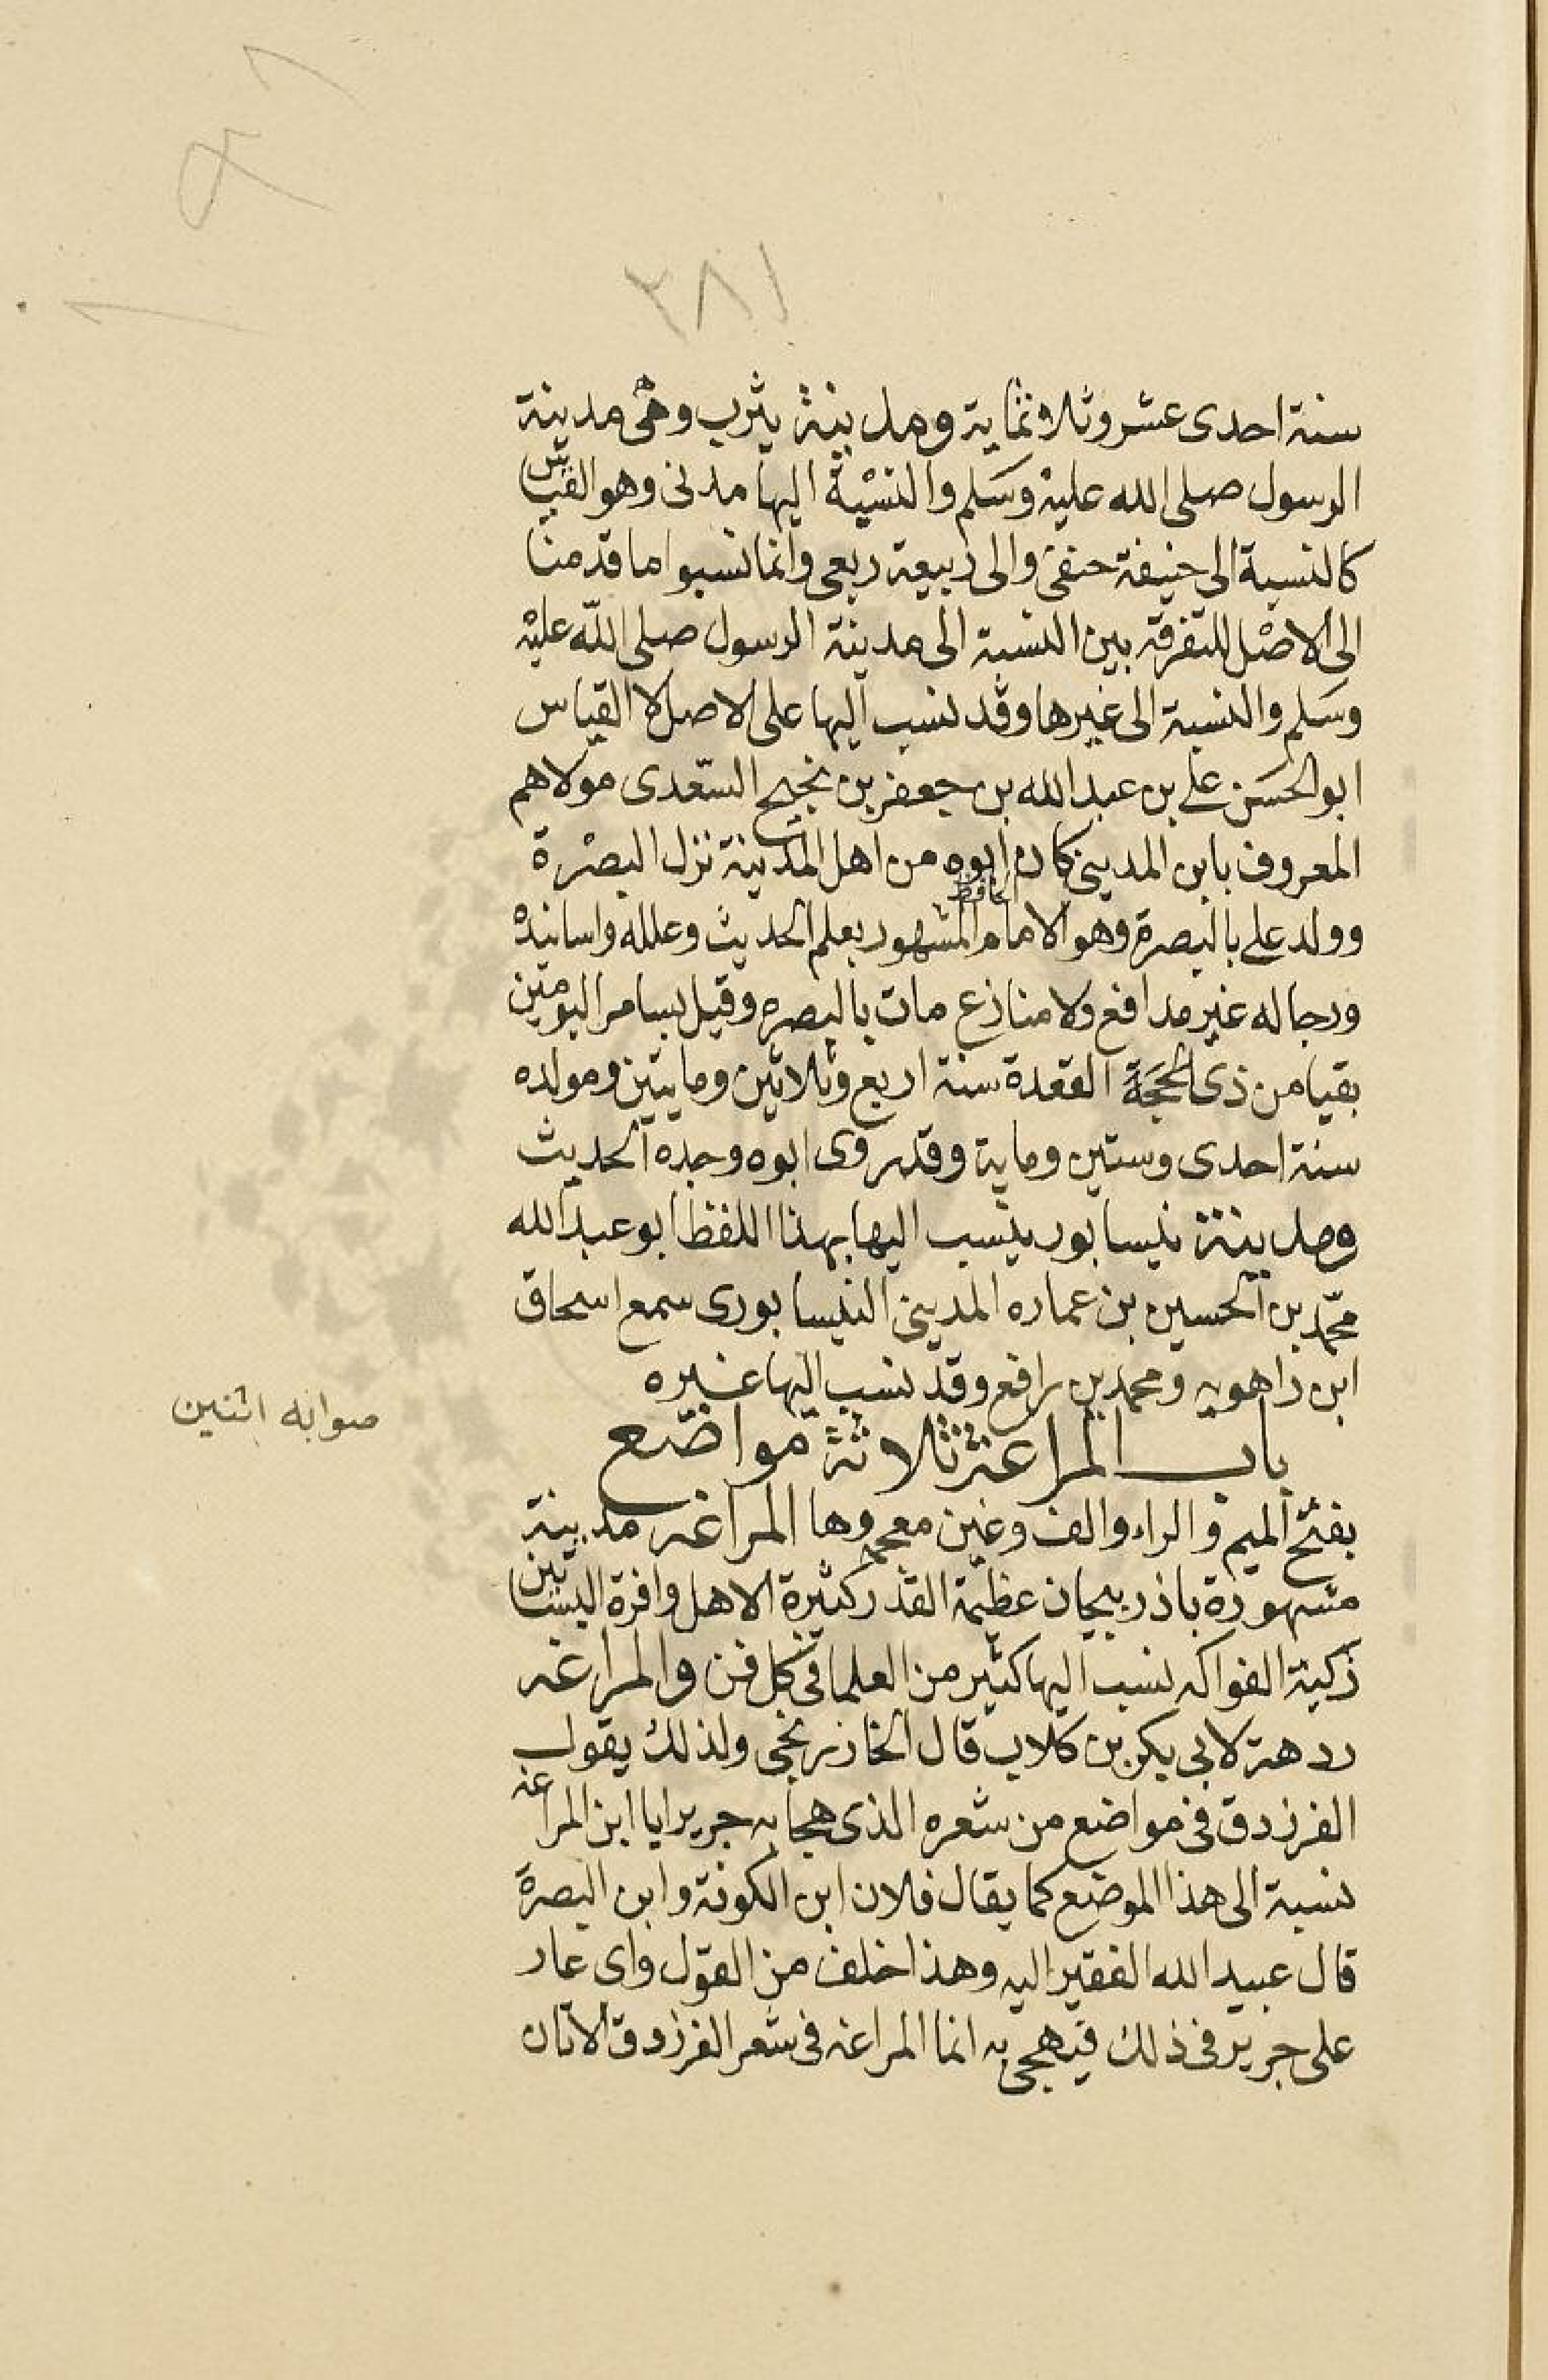 ٣٨١
سنة احدى عشر وثلاثماية ومدينة يثرب وهى مدينة
الرسول صلى الله عليه وسلم والنسبة اليها مدنى وهو القياس
كالنسبة الى حنيفة حنفى والى ربيعة ربعى وانما نسبوا ما قدمنا
الى الاصل للتفرقة بين النسبة الى مدينة الرسول صلى الله عليه
وسلم والنسبة الى غيرها وقد نسب اليها على الاصل لا القياس
ابو الحسن على بن عبد الله بن جعفر بن نجيح السعدى مولاهم
المعروف بابن المدينى كان ابوه من اهل المدينة نزل البصرة
وولد على بالبصرة وهو الامام الحافظ المشهور بعلم الحديث وعلله واسانيده
ورجاله غير مدافع ولا منازع مات بالبصره وقيل بسامرا ليومين
بقيا من ذى الحجة القعدة سنة اربع وثلاثين ومايتين ومولده
سنة احدى وستين وماية وقد روى ابوه وجده الحديث
ومدينة نيسابور ينسب اليها بهذا اللفظ ابو عبد الله
محمد بن الحسين بن عماره المدينى النيسابورى سمع اسحاق
ابن راهويه ومحمد بن رافع وقد نسب اليها غيره
باب المراغة ثلاثة مواضع
صوابه اثنين
بفتح الميم والراء والف وغين معجمه وها المراغه مدينة
مشهورة باذربيجان عظيمة القدر كثيرة الاهل وافرة البساتين
زكية الفواكه نسب اليها كثير من العلما فى كل فن والمراغه
ردهة لابى بكر بن كلاب قال الخارزنجى ولذلك يقول
الفرزدق فى مواضع من شعره الذى هجا به جريرا يا ابن المراغه
نسبة الى هذا الموضع كما يقال فلان ابن الكوفة وابن البصرة
قال عبيد الله الفقير اليه وهذا خلف من القول واى عار
على جرير فى ذلك فيهجى به انما المراغه فى شعر الفرزدق الاتان